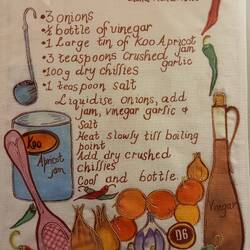 •3 onions
•½ bottle of vinegar
•1 Large tin of Koo Apricot jam
•3 teaspoons crushed garlic
•100g dry chillies
•1 teaspoon salt
Liquidise onions, add
jam, vinegar garlic &
Salt
Heat slowly till boiling
point
Add dry crushed
chillies
Cool and bottle.
Koo
Apricot
jam
Vinegar